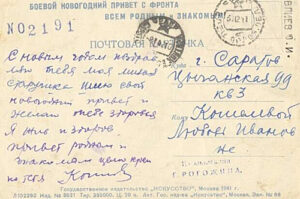 БОЕВОЙ НОВОГОДНИЙ ПРИВЕТ С ФРОНТА
ВСЕМ РОДНЫМ И ЗНАКОМЫМ
№02191
ПОЧТОВАЯ
С новым годом поздрав
ляю тебя моя милая
старушка шлю свой
новогодний привет и
желаю тебе здоровья
Я жив и здоров
привет родным и
знакомым целую креп
ко тебя
г. Саратов
Цыганская 99
кв 3
Кошелевой
Любови Иванов
не
Государственное издательство „ИСКУССТВО“, Москва 1941 г.